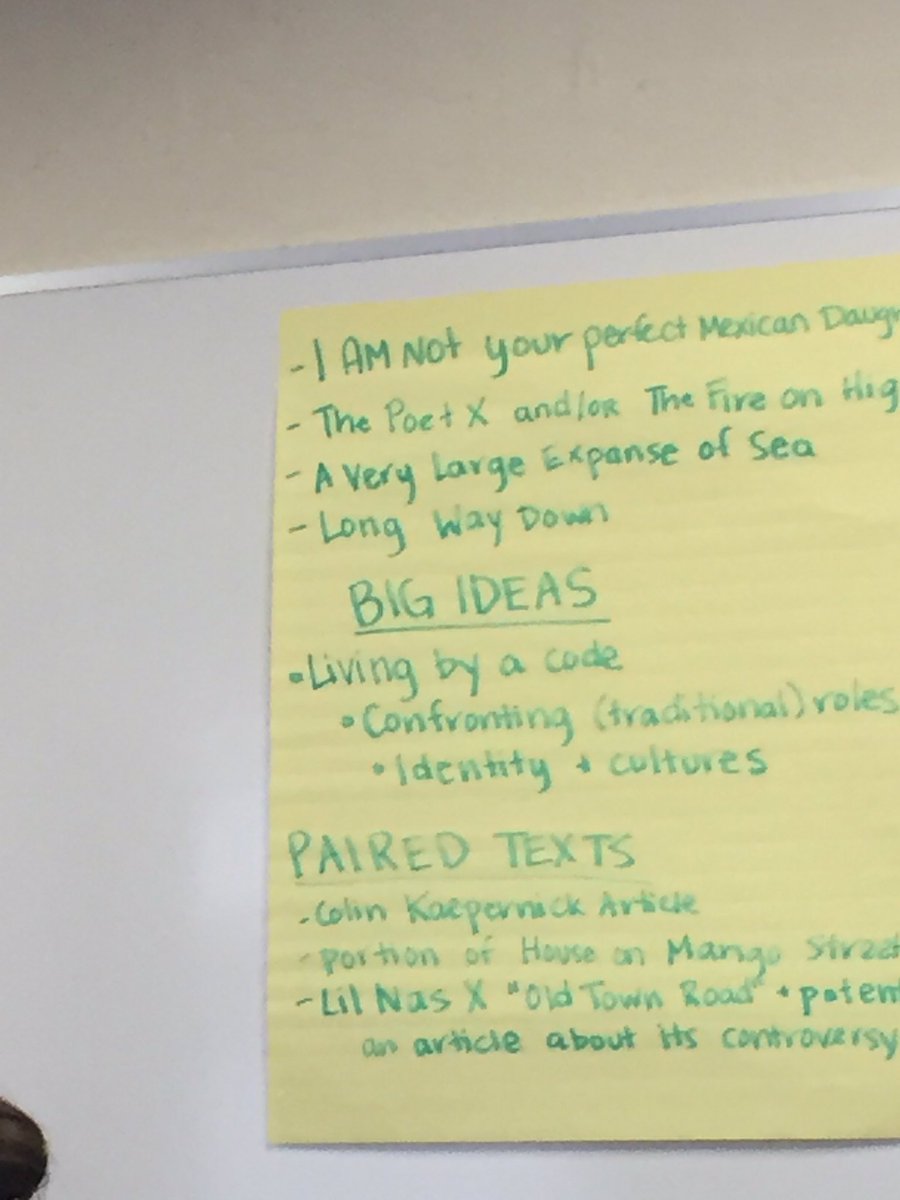 - I AM NOt your perfect Mexican Daugh
- The Poet X and/or The Fire on Hig
- A Very Large Expanse of Sea
- Long Way Down
BIG IDEAS
• Living by a code
• Confronting (traditional) roles
• Identity + cultures
PAIRED TEXTS
- Colin Kaepernick Article
- portion of House on Mango Street
- Lil Nas X "Old Town Road" + poten
an article about its controversy